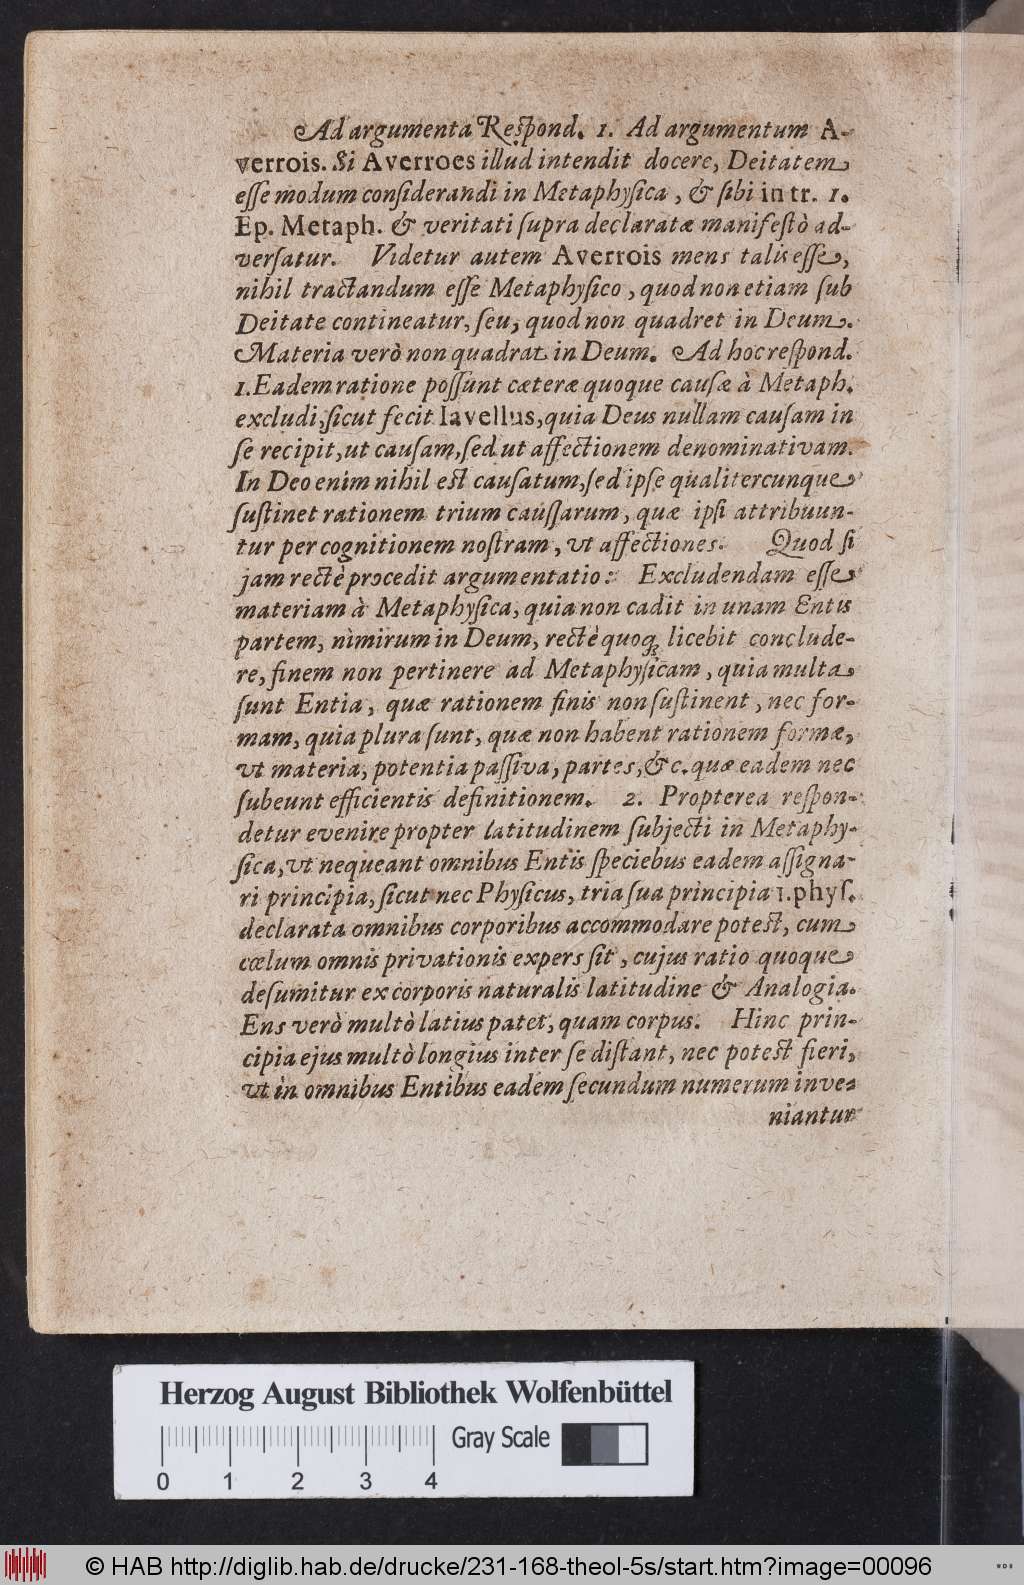 Ad argumenta Respond. 1. Ad argumentum A-
verrois. Si Averroes illud intendit docere, Deitatem
eſſe modum conſiderandi in Metaphyſica, & ſibi in tr. 1.
Ep. Metaph. & veritati ſupra declaratæ manifeſtò ad-
verſatur. Videtur autem Averrois mens talis eſſe,
nihil tractandum eſſe Metaphyſico, quod non etiam ſub
Deitate contineatur, ſeu, quod non quadret in Deum.
Materia verò non quadrat in Deum. Ad hoc reſpond.
1. Eadem ratione poſſunt cæteræ quoque cauſæ à Metaph.
excludi, ſicut fecit Iavellus, quia Deus nullam cauſam in
ſe recipit, ut cauſam, ſed ut affectionem denominativam.
In Deo enim nihil eſt cauſatum, ſed ipſe qualitercunque
ſuſtinet rationem trium cauſſarum, quæ ipſi attribuun-
tur per cognitionem noſtram, ut affectiones. Quod ſi
jam rectè procedit argumentatio: Excludendam eſſe
materiam à Metaphyſica, quia non cadit in unam Entis
partem, nimirum in Deum, rectè quoqꝫ licebit conclude-
re, finem non pertinere ad Metaphyſicam, quia multa
ſunt Entia, quæ rationem finis non ſuſtinent, nec for-
mam, quia plura ſunt, quæ non habent rationem formæ,
ut materia, potentia paſſiva, partes, &c. quæ eadem nec
ſubeunt efficientis definitionem. 2. Propterea reſpon-
detur evenire propter latitudinem ſubjecti in Metaphy-
ſica, ut nequeant omnibus Entis ſpeciebus eadem aſſigna-
ri principia, ſicut nec Phyſicus, tria ſua principia 1. phyſ.
declarata omnibus corporibus accommodare poteſt, cum
cœlum omnis privationis expers ſit, cujus ratio quoque
deſumitur ex corporis naturalis latitudine & Analogia.
Ens verò multò latius patet, quam corpus. Hinc prin-
cipia ejus multò longius inter ſe diſtant, nec poteſt fieri,
ut in omnibus Entibus eadem ſecundum numerum inve-
niantur
Herzog August Bibliothek Wolfenbüttel
Gray Scale
0 1 2 3 4
© HAB http://diglib.hab.de/drucke/231-168-theol-5s/start.htm?image=00096